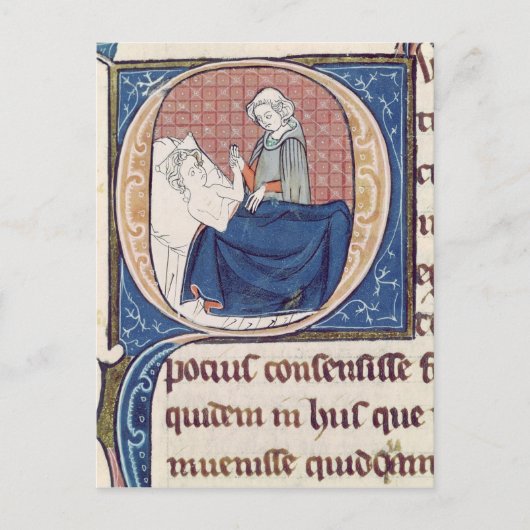 pociuſ conſenſiſſe
quidem in huſ que
mueniſſe quidqam